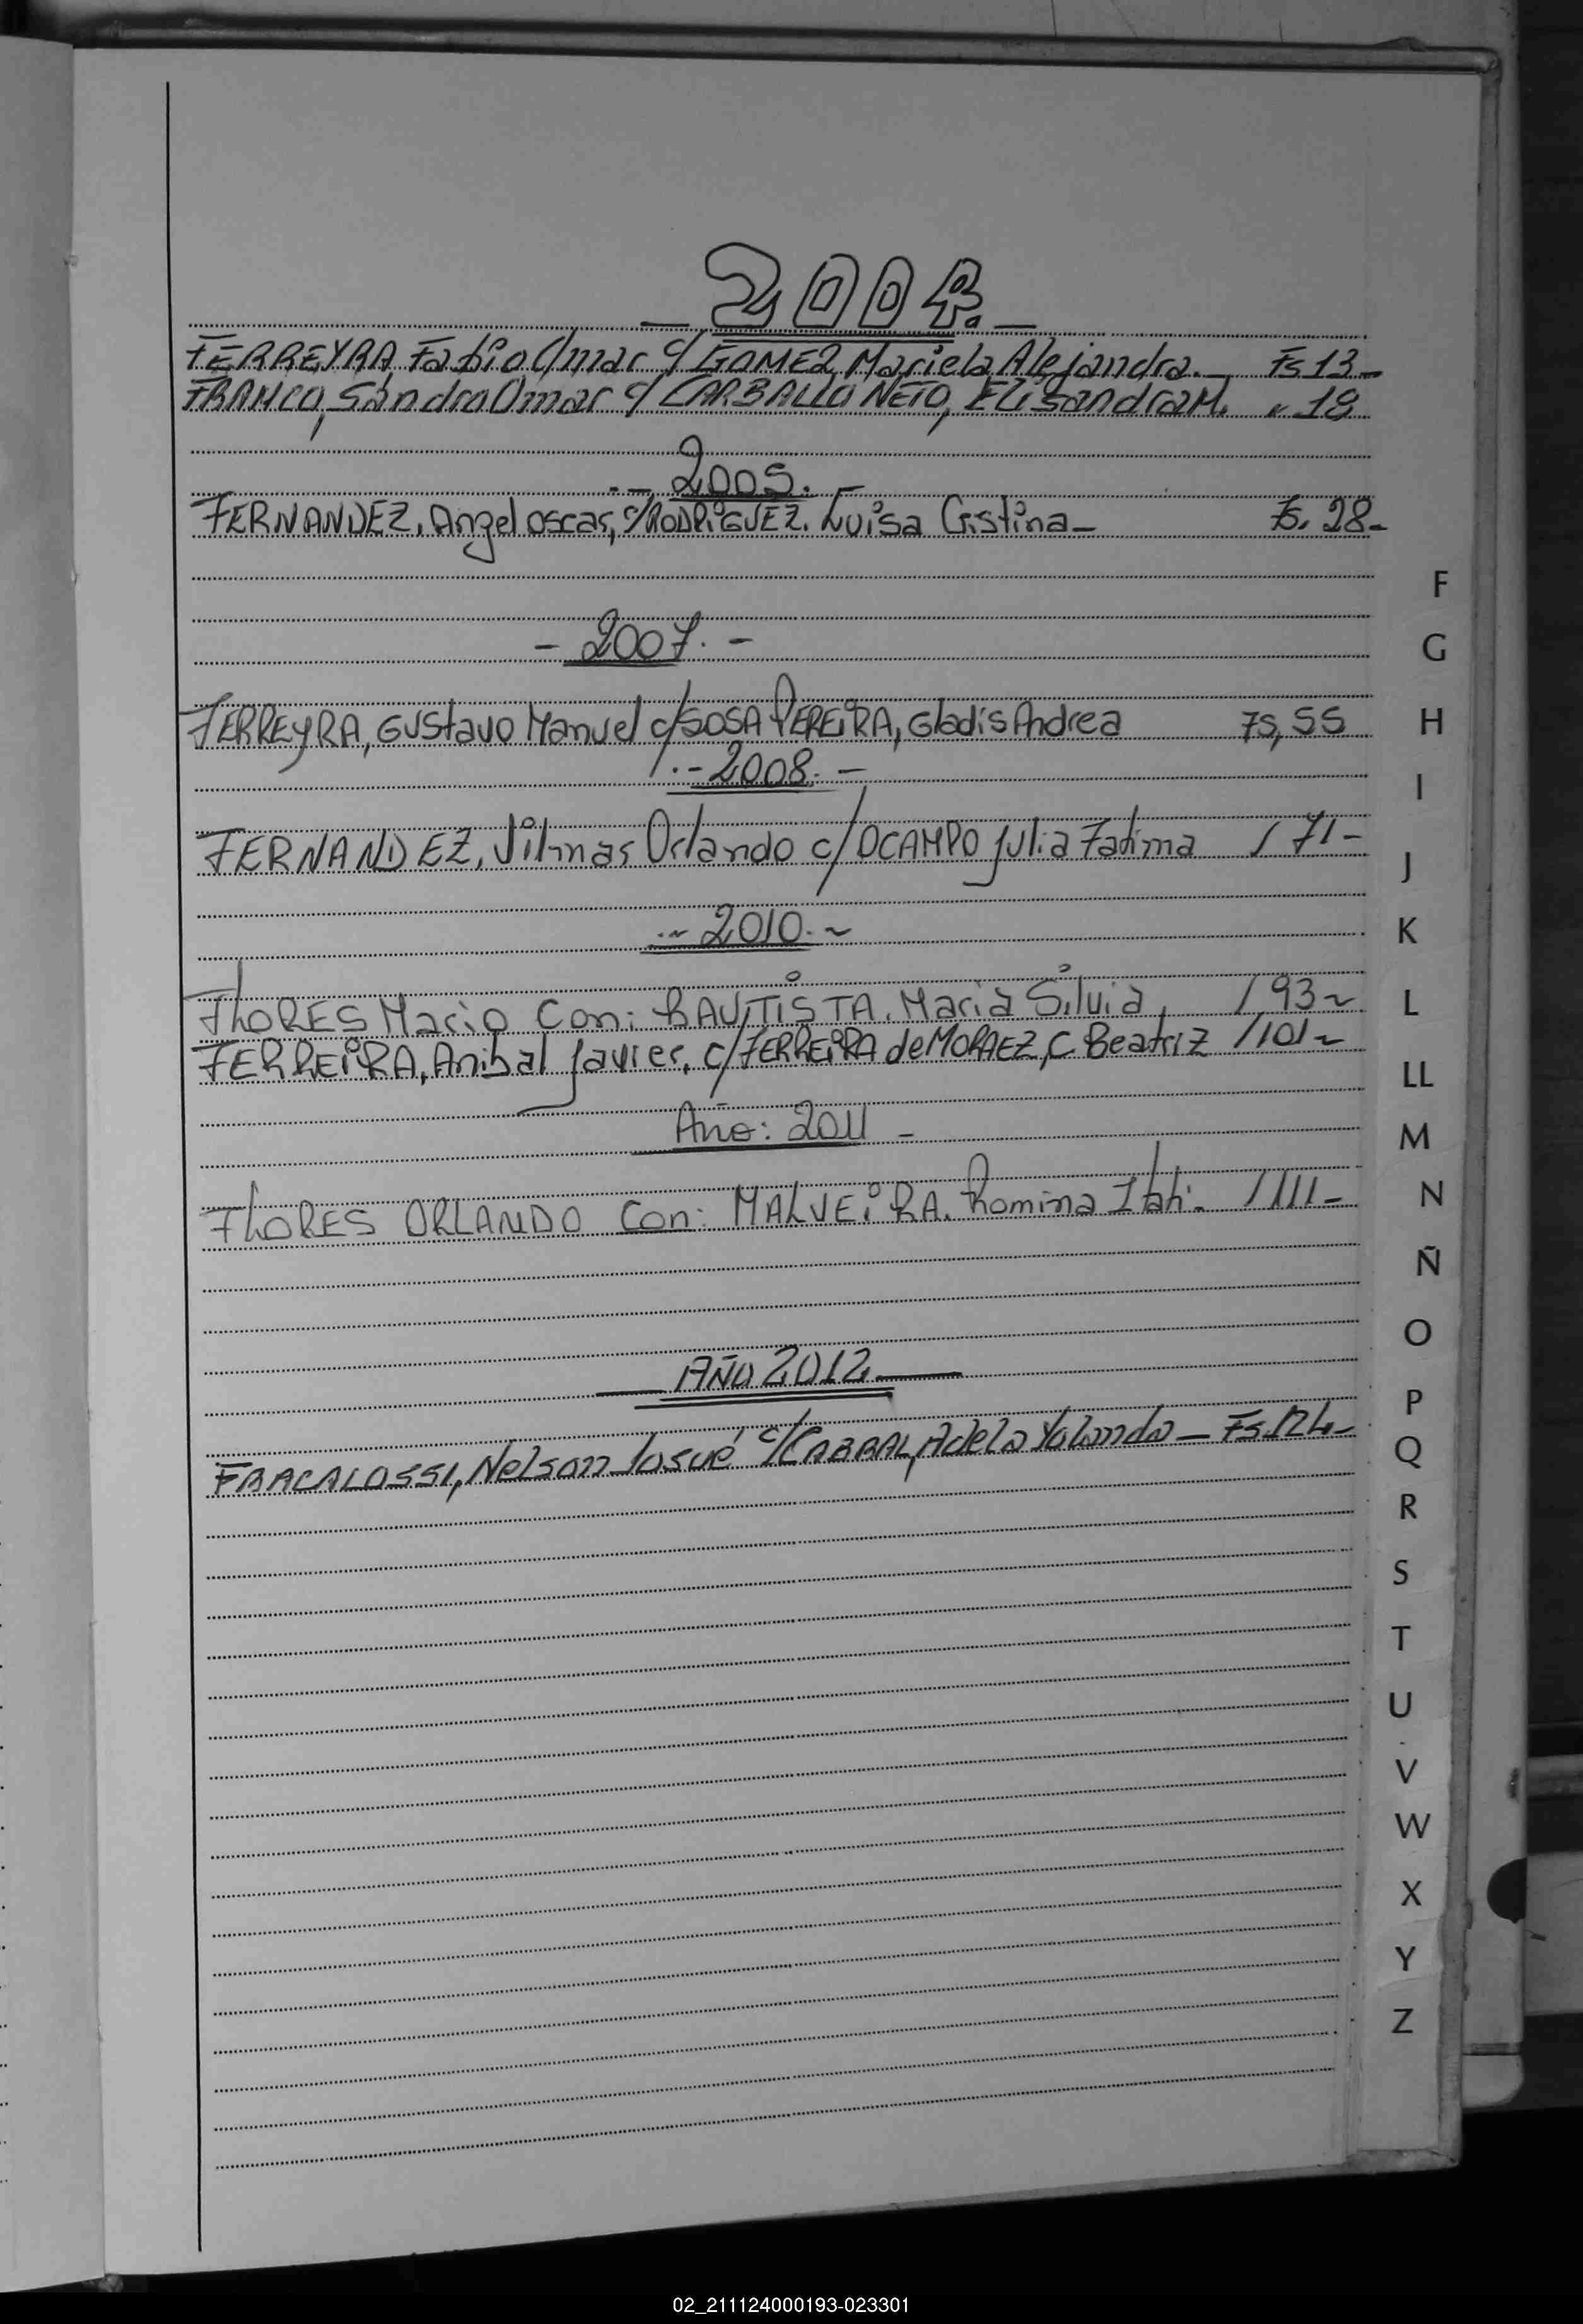 _ 2004. _
FERREYRA, Fabio Omar c/ GOMEZ, Mariela Alejandra._ Fs 13_
FRANCO, Sandro Omar c/ CARBALLO NETO, Elisandra M. " 18
.- 2005. -
FERNANDEZ, Angel oscar, c/RODRiGUEZ. Luisa Cristina_ Fs. 28_
- 2007. -
FERREyRA, Gustavo Manuel c/SOSA PEREiRA, Gladis Andrea Fs, 55
.- 2008. -
FERNANDEZ, Vilmar Orlando c/ OCAMPO Julia Fatima / 71-
.~ 2010. ~
FLORES Mario Con: BAUTiSTA. Maria Silvia, / 93~
FERREiRA, Anibal Javier, c/FERREiRA de MORAEZ, C Beatriz /101~
Año: 2011 -
FLORES ORLANDO Con: MALVEiRA. Romina Itati. /111-
AÑO 2012
FRACALOSSI, Nelson Josué c/CABRAL, Adela Yolanda _ Fs.124_
F
G
H
I
J
K
L
LL
M
N
Ñ
O
P
Q
R
S
T
U
V
W
X
Y
Z
02_211124000193-023301